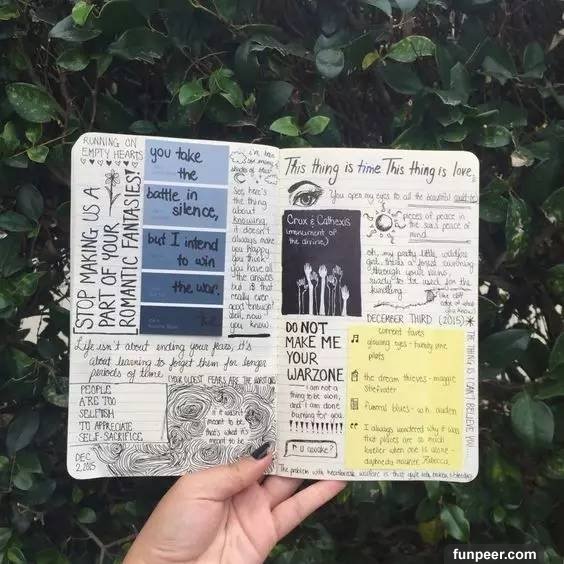 RUNNING ON
EMPTY HEARTS
STOP MAKING US A
PART OF YOUR
ROMANTIC FANTASIES!
you take
the
battle in
silence,
but I intend
to win
the war.
so, here's
the thing
about
knowing.
it doesn't
always make
you happy
you think
you have all
the answers
but is that
really ever
good enough?
well, now
you know.
Life isn't about ending your fears, it's
about learning to forget them for longer
periods of time.
(YOUR OLDEST FEARS ARE THE WORST ONES)
PEOPLE
ARE TOO
SELFISH
TO APPRECIATE
SELF-SACRIFICE
DEC
2, 2015
if it wasn't
meant to be,
that's what it's
meant to be
This thing is time This thing is love,
You open my eyes to all the beautiful
Crux & Cathexis
(monument of
the divine)
pieces of peace in
the
mind
oh, my pretty little wildfire
girl, there's a forest
through your veins,
ready to be used for the
kindling.
DECEMBER THIRD (2015)
DO NOT
MAKE ME
YOUR
WARZONE
I am not a
thing to be won,
and I am done
burning for you.
r u awake?
current faves
glowing eyes - twenty one
pilots
the dream thieves - maggie
stiefvater
funeral blues - w.h. auden
I always wondered why it was
that places are so much
lovelier when one is alone -
daphne du maurier, Rebecca
The problem with heartbreak warfare is that
funpeer.com